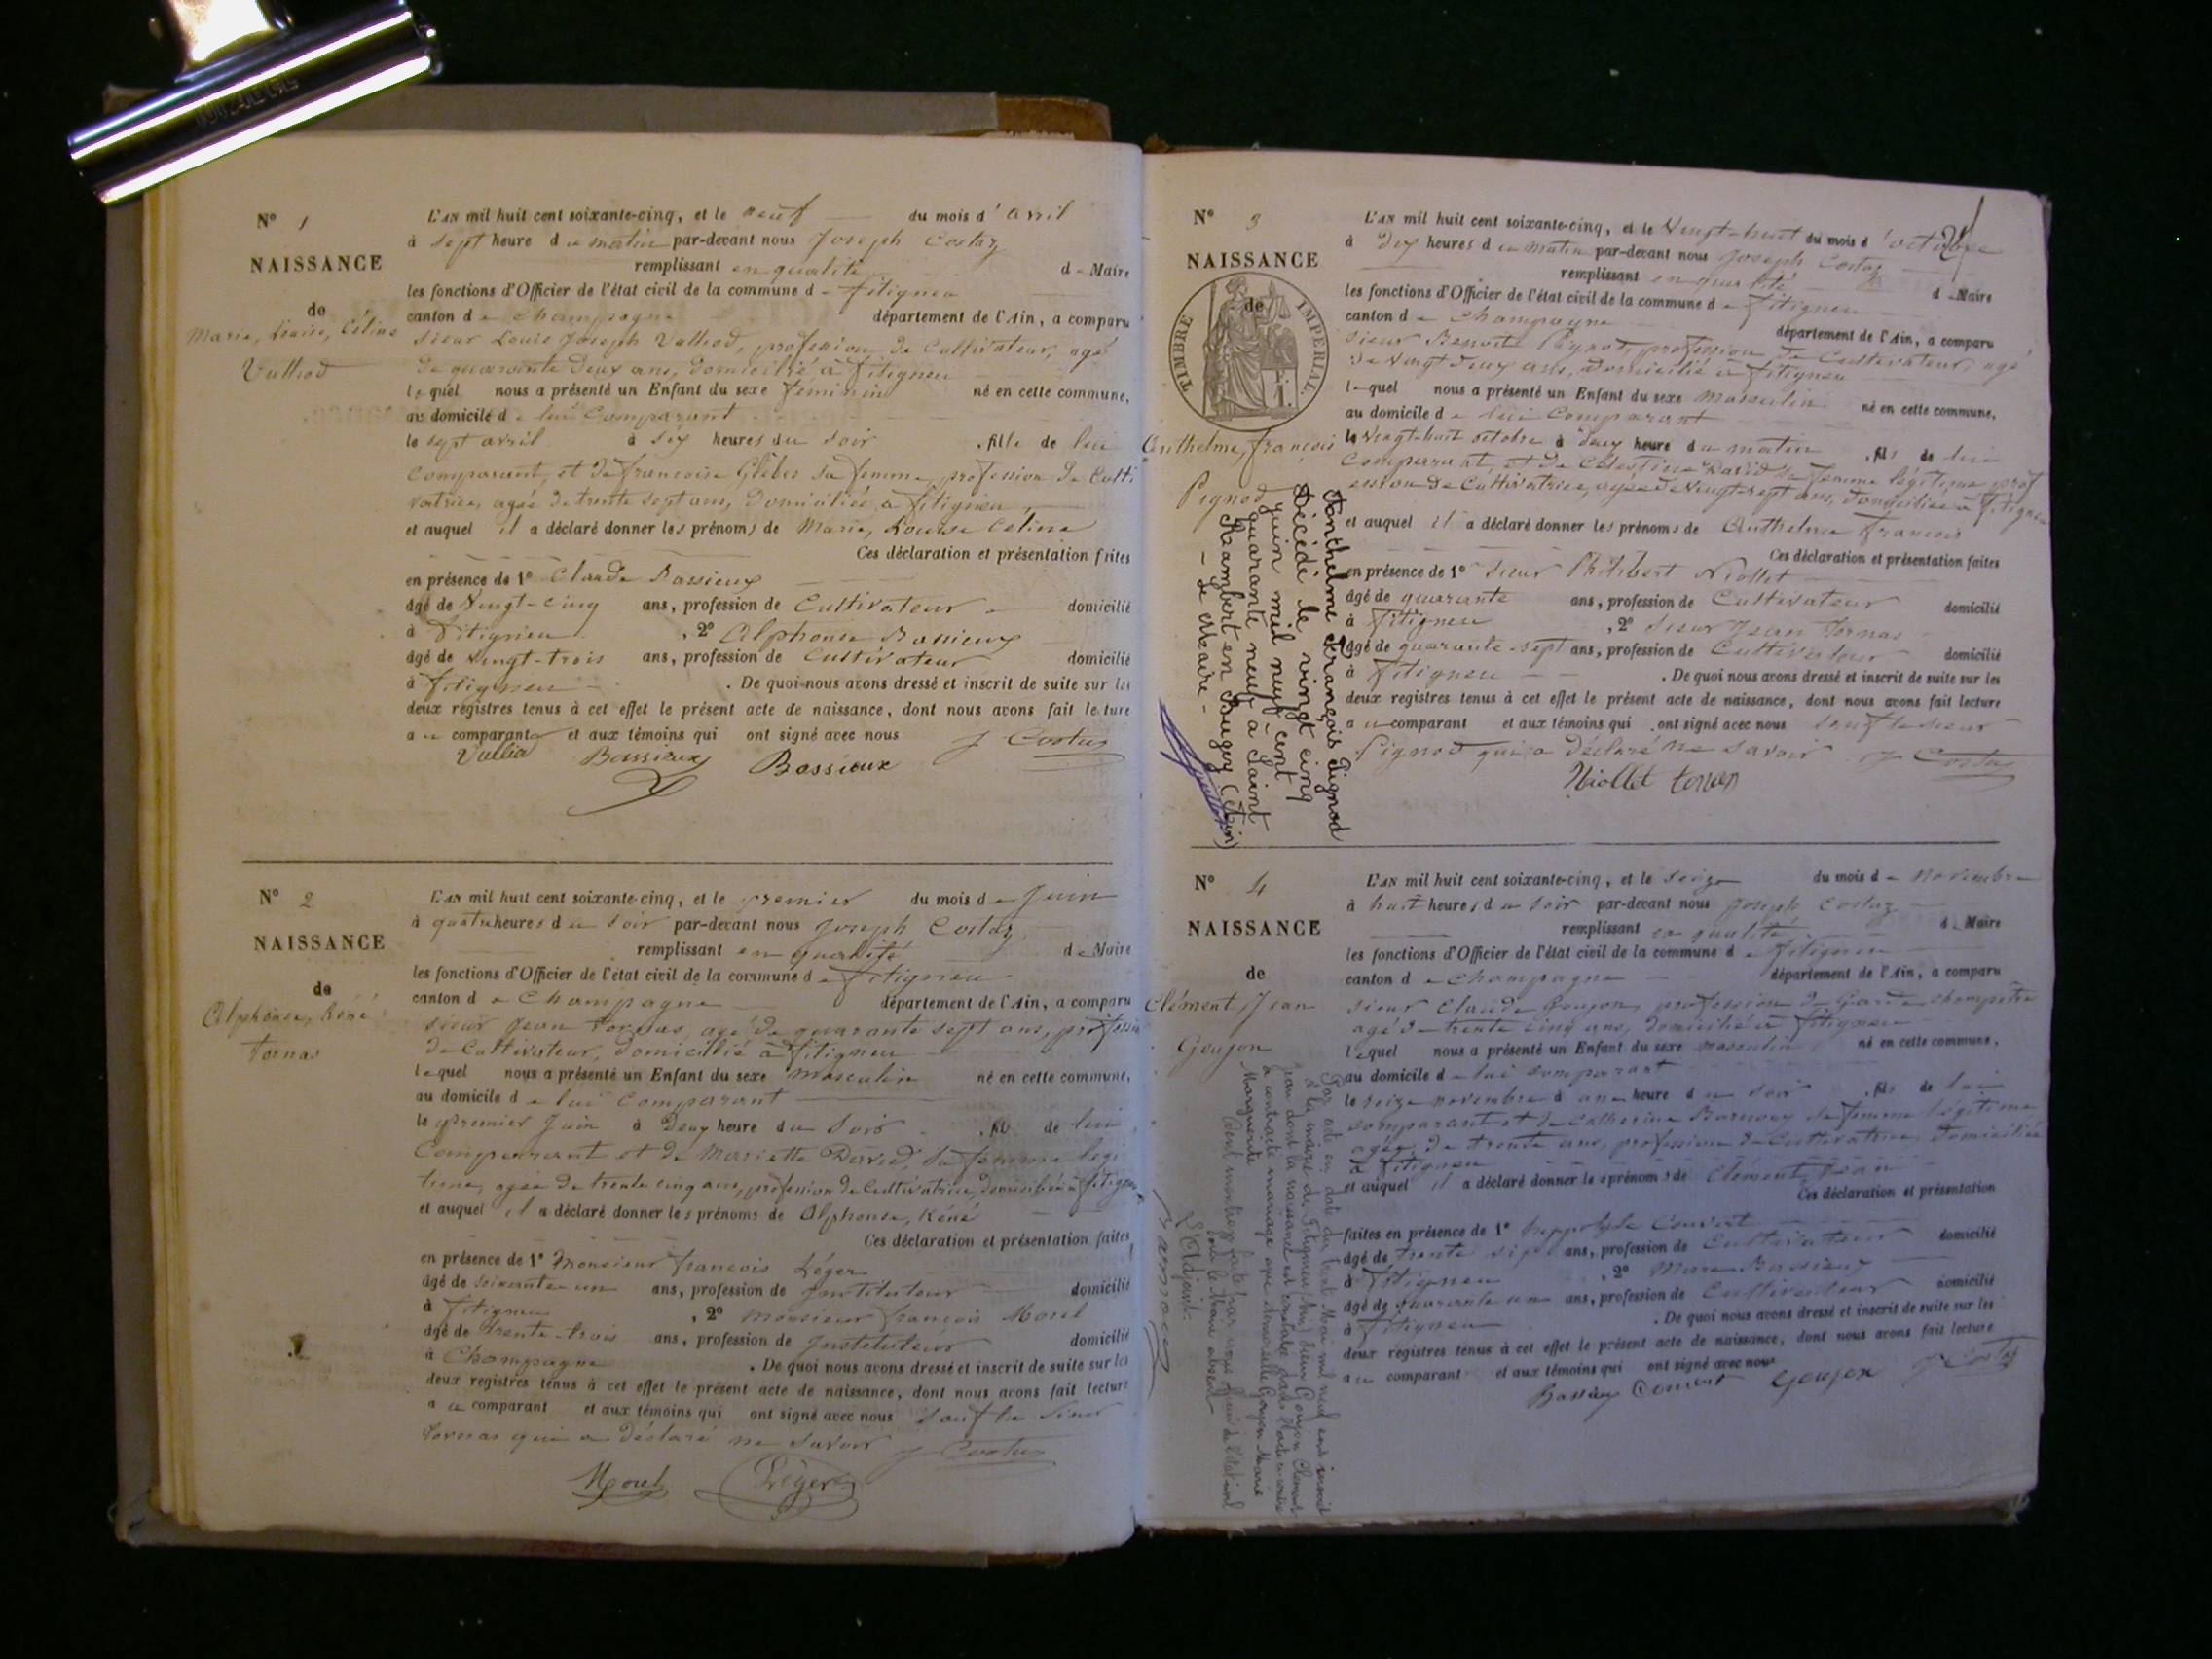 N° 1
NAISSANCE
de
Marie, Louise, Céline
Vulliod
L'AN mil huit cent soixante-cinq, et le neuf du mois d'avril
à sept heure du matin par-devant nous Joseph Costaz
remplissant en qualité de Maire
les fonctions d'Officier de l'état civil de la commune de fitignieu
canton de Champagne département de l'Ain, a comparu
sieur Louis Joseph Vulliod, profession de Cultivateur, agé
de quarante deux ans, domicilié à fitignieu
lequel nous a présenté un Enfant du sexe féminin né en cette commune,
au domicile de lui Comparant
le sept avril à six heures du soir, fille de lui
comparant, et de francoise sa femme, profession de Culti
vatrice, agée de trente sept ans, domiciliée à fitignieu
et auquel il a déclaré donner les prénoms de Marie, Louise Celine
Ces déclaration et présentation faites
en présence de 1° Claude Bassieux
âgé de vingt-cinq ans, profession de Cultivateur domicilié
à fitignieu, 2° Alphonse Bassieux
âgé de vingt-trois ans, profession de Cultivateur domicilié
à fitignieu. De quoi nous avons dressé et inscrit de suite sur les
deux registres tenus à cet effet le présent acte de naissance, dont nous avons fait lecture
au comparant et aux témoins qui ont signé avec nous
Bassieux Bassieux J Costaz
N° 2
NAISSANCE
de
Alphonse, Réné
Tornas
L'AN mil huit cent soixante-cinq, et le premier du mois de Juin
à quatre heures du soir par-devant nous Joseph Costaz
remplissant en qualité de Maire
les fonctions d'Officier de l'état civil de la commune de fitignieu
canton de Champagne département de l'Ain, a comparu
sieur Jean Tornas, agé de quarante sept ans, profession
de Cultivateur, domicilié à fitignieu
lequel nous a présenté un Enfant du sexe masculin né en cette commune,
au domicile de lui Comparant
le premier Juin à deux heure du soir, fils de lui
Comparant et de Mariette David, sa femme legi
time, agée de trente cinq ans, profession de Cultivatrice, domiciliée à fitignieu
et auquel il a déclaré donner les prénoms de Alphonse, Réné
Ces déclaration et présentation faites
en présence de 1° Monsieur francois Léger
âgé de soixante un ans, profession de Instituteur domicilié
à fitignieu, 2° Monsieur françois Morel
âgé de trente-trois ans, profession de Instituteur domicilié
à Champagne. De quoi nous avons dressé et inscrit de suite sur les
deux registres tenus à cet effet le présent acte de naissance, dont nous avons fait lecture
au comparant et aux témoins qui ont signé avec nous sauf le sieur
Tornas qui a déclaré ne savoir J Costaz
Morel Léger
N° 3
NAISSANCE
de
TIMBRE IMPERIAL
Anthelme, francois
Pignod
Anthelme François Pignod
Décédé le vingt cinq
juin mil neuf cent
quarante neuf à Saint
Rambert en Bugey (Ain)
- Le Maire -
L'AN mil huit cent soixante-cinq, et le Vingt-huit du mois d'octobre
à dix heures du matin par-devant nous Joseph Costaz
remplissant en qualité de Maire
les fonctions d'Officier de l'état civil de la commune de fitignieu
canton de Champagne département de l'Ain, a comparu
sieur Benoite Pignod, profession de Cultivateur, agé
de vingt deux ans, domicilié à fitignieu
lequel nous a présenté un Enfant du sexe masculin né en cette commune,
au domicile de lui Comparant
le vingt-huit octobre à deux heure du matin, fils de lui
comparant, et de Célestine David sa femme légitime, prof
ession de Cultivatrice, agée de vingt-sept ans, domiciliée à fitignieu
et auquel il a déclaré donner les prénoms de Anthelme francois
Ces déclaration et présentation faites
en présence de 1° sieur Philibert Niollet
âgé de quarante ans, profession de Cultivateur domicilié
à fitignieu, 2° sieur Jean Tornas
âgé de quarante-sept ans, profession de Cultivateur domicilié
à fitignieu. De quoi nous avons dressé et inscrit de suite sur les
deux registres tenus à cet effet le présent acte de naissance, dont nous avons fait lecture
au comparant et aux témoins qui ont signé avec nous sauf le sieur
Pignod qui a déclaré ne savoir J Costaz
Niollet
N° 4
NAISSANCE
de
Clément, Jean
Goujon
Par acte en date du trente Mai mil neuf cent inscrit
à la mairie de Fitignieu (Ain) Goujon Clément
Jean dont la naissance est constatée dans l'acte ci-contre
a contracté mariage avec demoiselle Goujon Marie
Marguerite
L'Adjoint.
L'AN mil huit cent soixante-cinq, et le seize du mois de novembre
à huit heures du soir par-devant nous Joseph Costaz
remplissant en qualité de Maire
les fonctions d'Officier de l'état civil de la commune de fitignieu
canton de Champagne département de l'Ain, a comparu
sieur Claude Goujon, profession de Garde champêtre
agé de trente cinq ans, domicilié à fitignieu
lequel nous a présenté un Enfant du sexe masculin né en cette commune,
au domicile de lui comparant
le seize novembre à une heure du soir, fils de lui
comparant et de Catherine sa femme légitime
agée de trente ans, profession de Cultivatrice, domiciliée
à fitignieu
et auquel il a déclaré donner les prénoms de Clément, Jean
Ces déclaration et présentation
faites en présence de 1° hippolyte Convert
âgé de trente six ans, profession de Cultivateur domicilié
à fitignieu, 2° Marc Bassieux
âgé de quarante un ans, profession de Cultivateur domicilié
à fitignieu. De quoi nous avons dressé et inscrit de suite sur les
deux registres tenus à cet effet le présent acte de naissance, dont nous avons fait lecture
au comparant et aux témoins qui ont signé avec nous
Bassieux Convert Goujon J Costaz